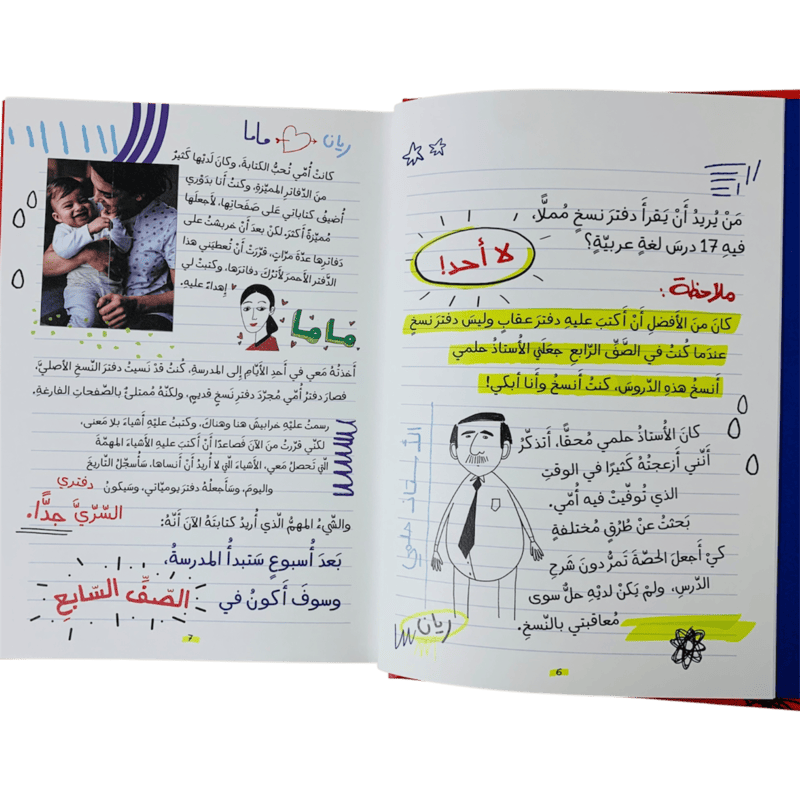 مَنْ يُريدُ أَنْ يَقرَأَ دفترَ نسخٍ مُملًّا،
فيهِ 17 درسَ لغةٍ عربيّةٍ؟
لا أحد!
ملاحظة:
كانَ مِنَ الأَفضلِ أَنْ أكتبَ عليهِ دفترَ عقابٍ وليسَ دفترَ نسخٍ
عندَما كُنتُ في الصَّفِّ الرّابعِ جعَلَني الأُستاذُ حلمي
أنسخُ هذِهِ الدّروسَ، كُنتُ أنسخُ وأنا أبكي!
كانَ الأُستاذُ حلمي مُحقًّا، أتذكّرُ
أنّني أزعجتُهُ كثيرًا في الوقتِ
الذي تُوفّيتْ فيه أُمّي.
بَحثتُ عنْ طُرُقٍ مُختلفةٍ
كيْ أجعلَ الحصّةَ تَمرُّ دونَ شرحِ
الدّرسِ، ولمْ يَكنْ لديْهِ حلٌّ سوى
مُعاقبتي بالنّسخِ.
الأستاذ حلمي
ريان
6
ريان ماما
كانتْ أُمّي تُحبُّ الكتابةَ، وكانَ لَديْها كَثيرٌ
منَ الدّفاترِ المميّزةِ، وكنتُ أنا بدَوْري
أُضيفُ كتاباتي عَلى صَفَحاتِها، لأجعلَها
مُميّزةً أكثرَ، لكنْ بعدَ أنْ خربشتُ على
دَفاترِها عدّةَ مرّاتٍ، قرّرَتْ أنْ تُعطيَني هذا
الدّفترَ الأحمرَ لأترُكَ دفاترَها، وكتبَتْ لي
إهداءً عليهِ.
ماما
أخذتُهُ مَعي في أحدِ الأيّامِ إلى المدرسةِ، كُنتُ قدْ نَسيتُ دفترَ النّسخِ الأصليَّ،
فصارَ دفترُ أُمّي مُجرّدَ دفترِ نسخٍ قديمٍ، ولكنّهُ مُمتلئٌ بالصّفحاتِ الفارغةِ.
رسمتُ عليْهِ خرابيشَ هنا وهناكَ، وكتبتُ عليْهِ أشياءَ بلا معنى،
لكنّي قرّرتُ منَ الآنَ فصاعدًا أنْ أكتبَ عليهِ الأشياءَ المهمّةَ
الّتي تَحصلُ مَعي، الأشياءَ الّتي لا أُريدُ أنْ أنساها، سَأُسجّلُ التّاريخَ
واليومَ، وسَأجعلُهُ دفترَ يوميّاتي، وسَيكونُ دفتري
السّرّيَّ جدًّا.
والشّيءُ المهمُّ الّذي أُريدُ كتابتَهُ الآنَ أنّهُ:
بَعدَ أُسبوعٍ سَتبدأُ المدرسةُ،
وسوفَ أكونُ في الصّفِّ السّابعِ
7